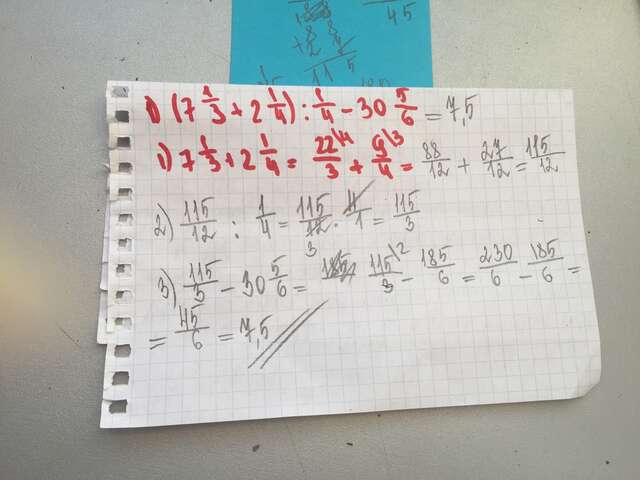 45
+8 8
11 5
1) (7 1/3 + 2 1/4) : 1/4 - 30 5/6 = 7,5
1) 7 1/3 + 2 1/4 = 22\4/3 + 9\3/4 = 88/12 + 27/12 = 115/12
2) 115/12 : 1/4 = 115/12 3 · 4/1 = 115/3
3) 115/3 - 30 5/6 = 115\2/3 - 185/6 = 230/6 - 185/6 =
= 45/6 = 7,5